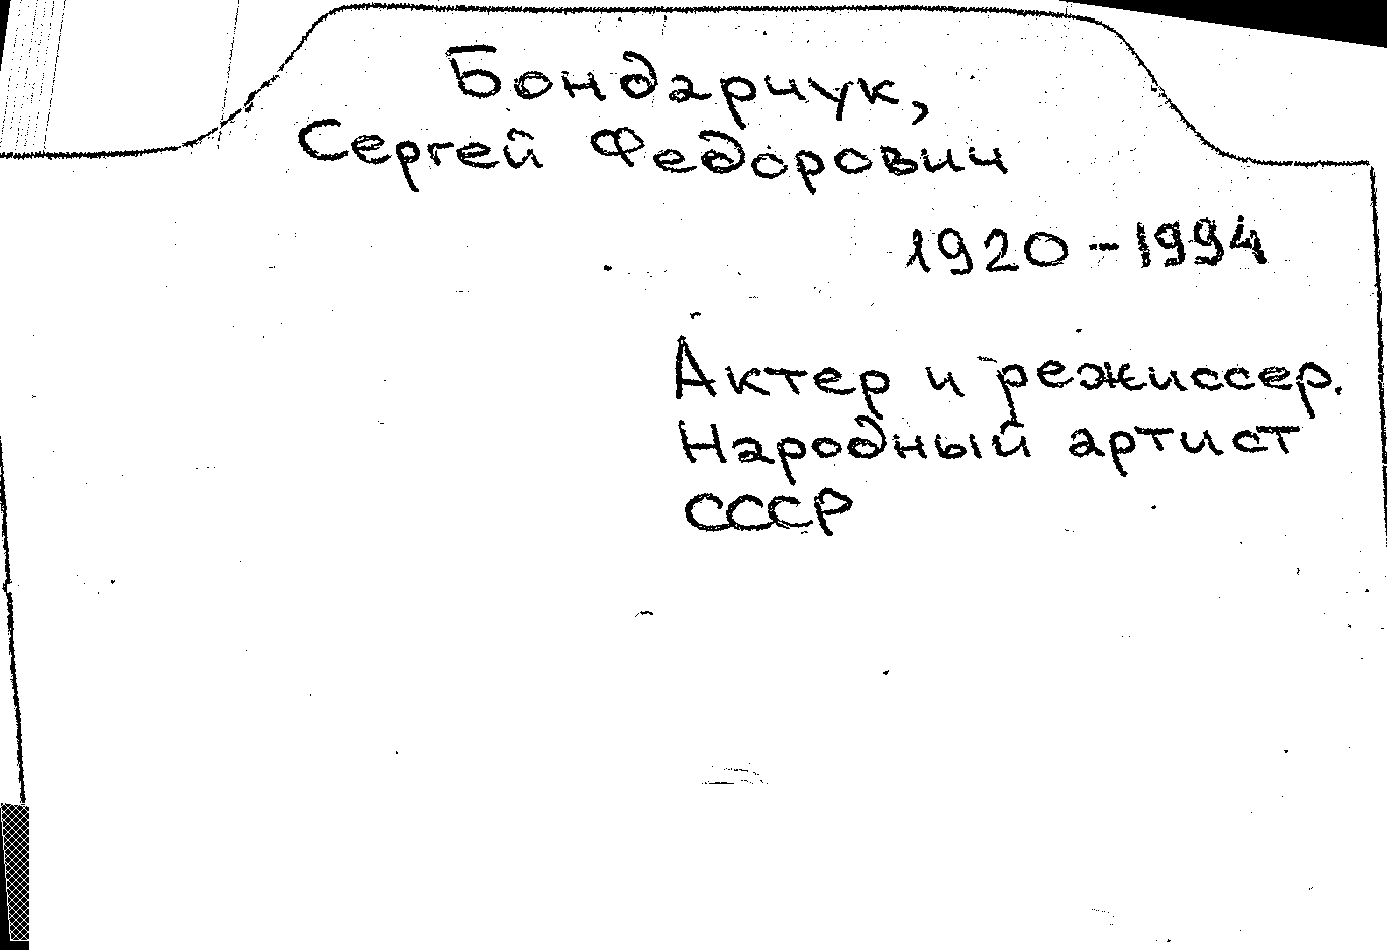 Бондарчук,
Сергей Федорович
1920-1994
Актер и режиссер.
Народный артист
СССР